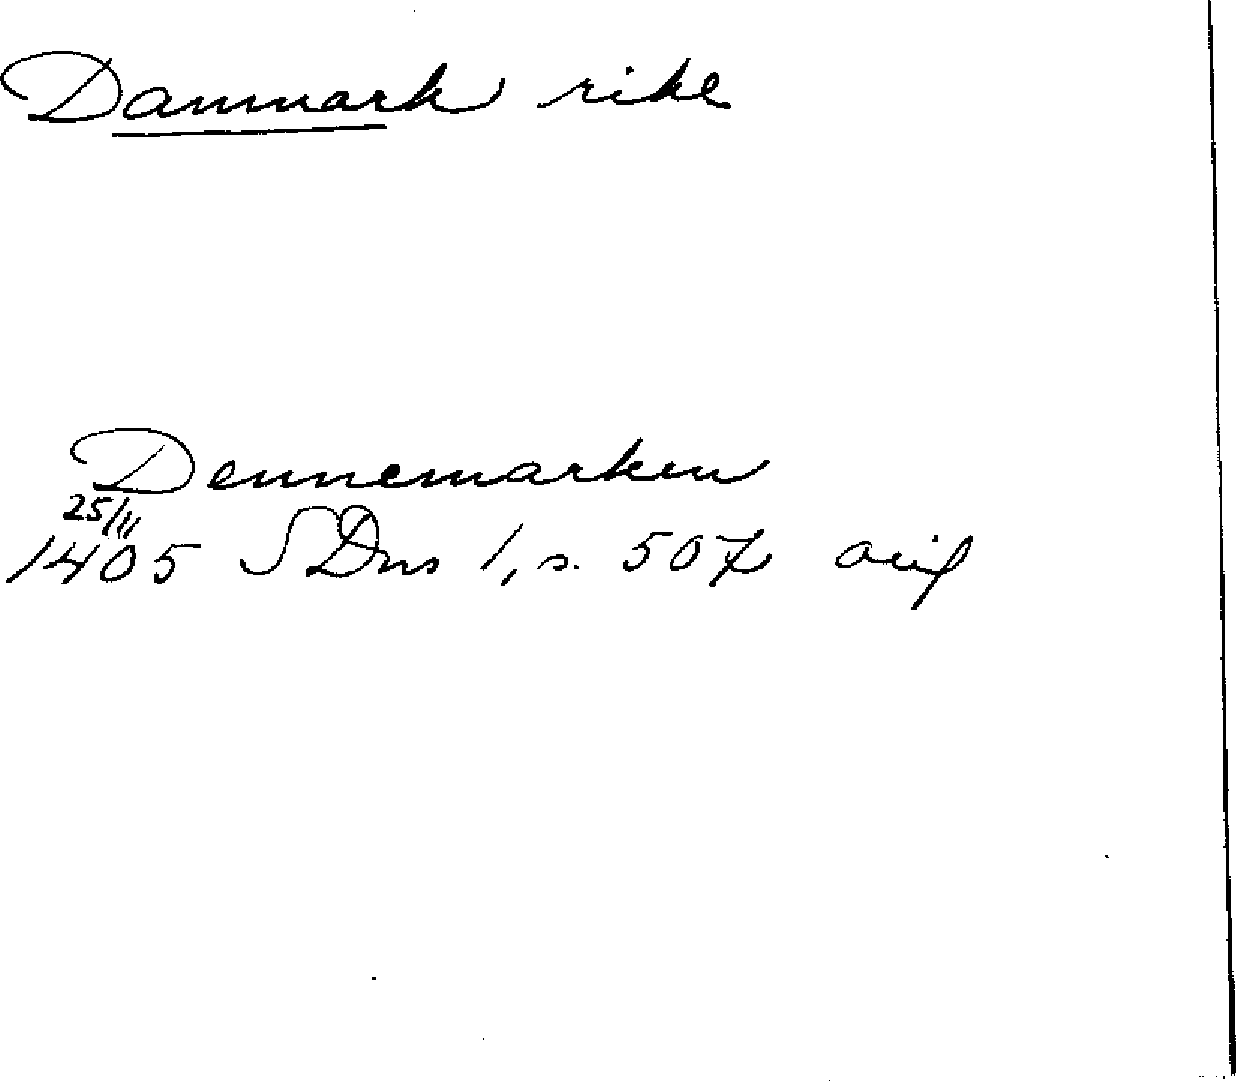 Danmark rike
Dennemarken
25/11
1405 SDns 1, s. 507 orig